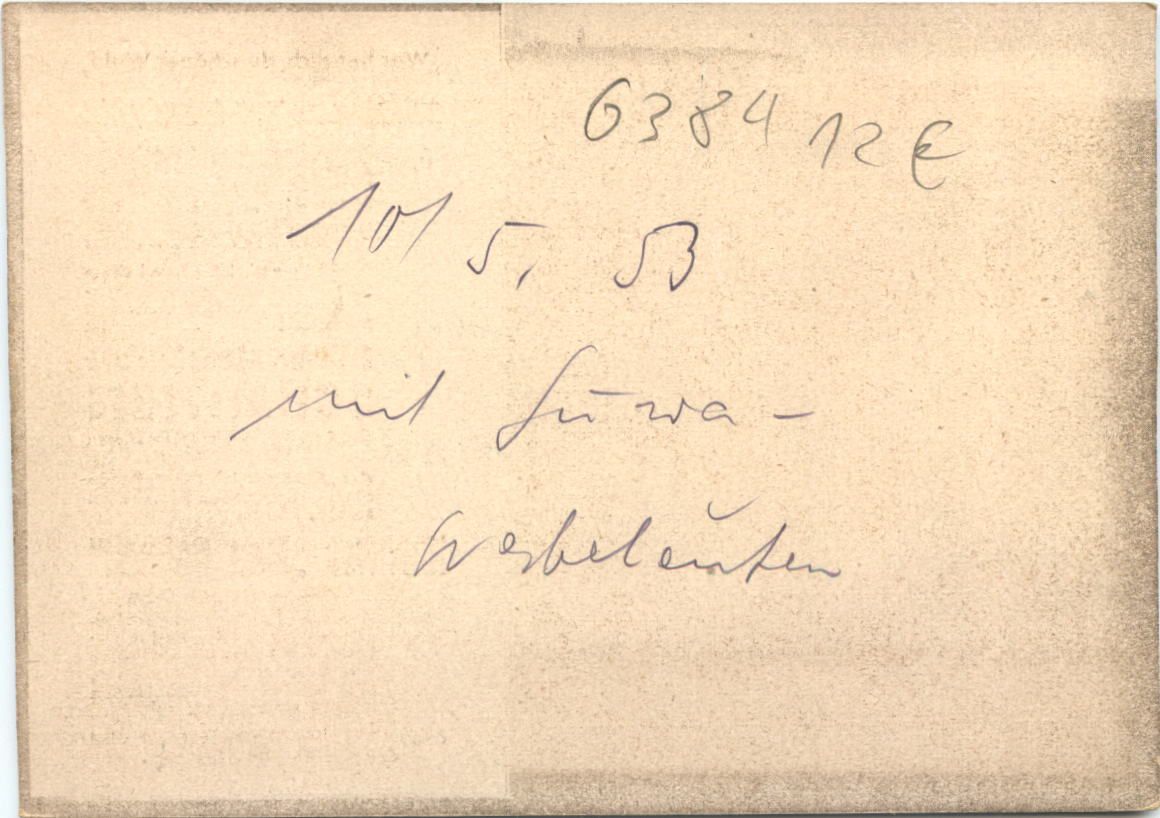 6384 12 €
10/ 5. 53
mit Suwa -
Werbeleuten